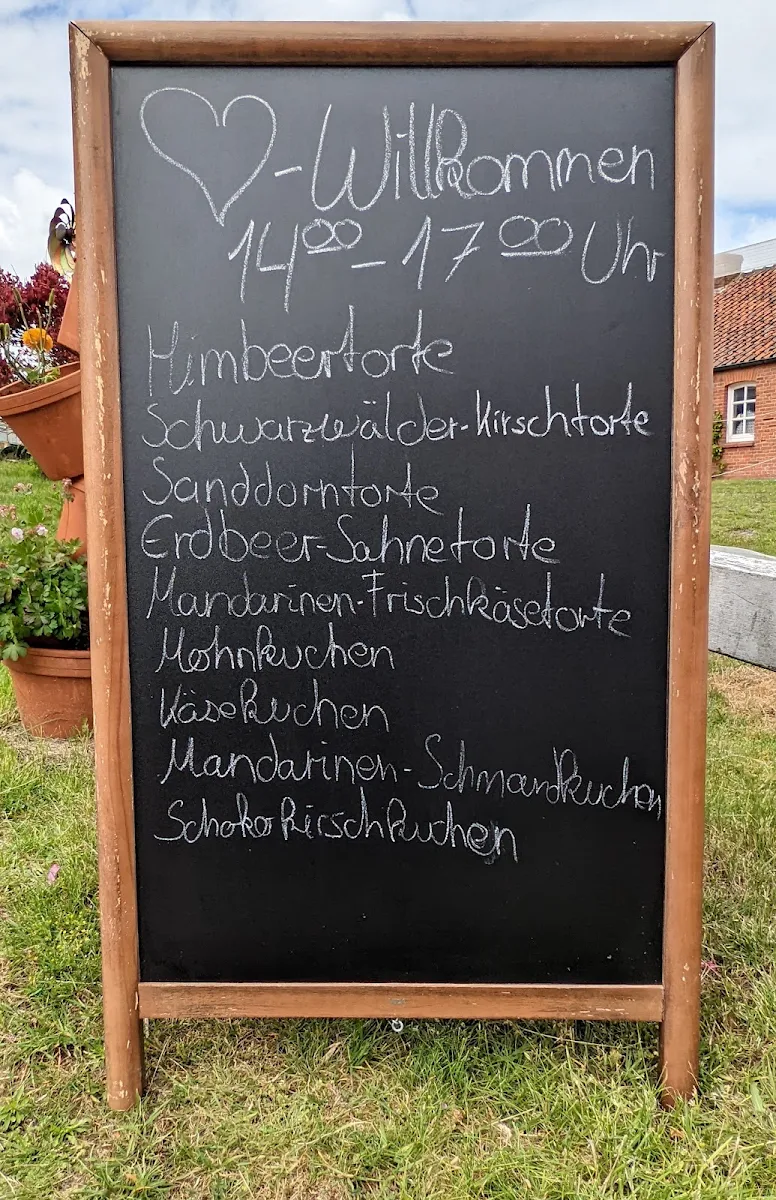 ♡-Willkommen
14⁰⁰-17⁰⁰ Uhr
Himbeertorte
Schwarzwälder-Kirschtorte
Sanddorntorte
Erdbeer-Sahnetorte
Mandarinen-Frischkäsetorte
Mohnkuchen
Käsekuchen
Mandarinen-Schmandkuchen
Schokokirschkuchen